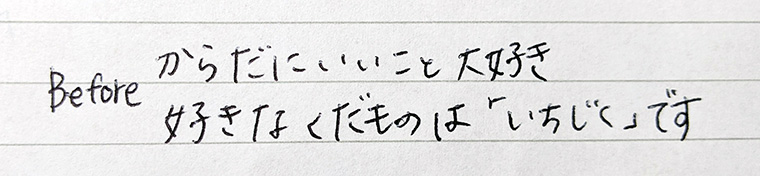 Before からだにいいこと大好き
好きなくだものは「いちじく」です